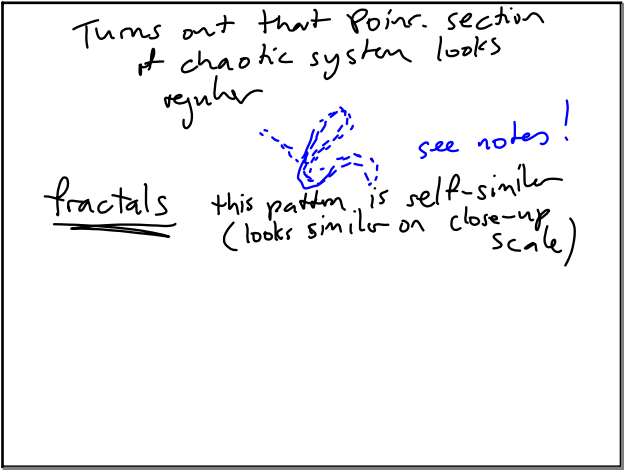 Turns out that Poinc. section
of chaotic system looks
regular
see notes!
fractals this pattern is self-similar
(looks similar on close-up
scale)